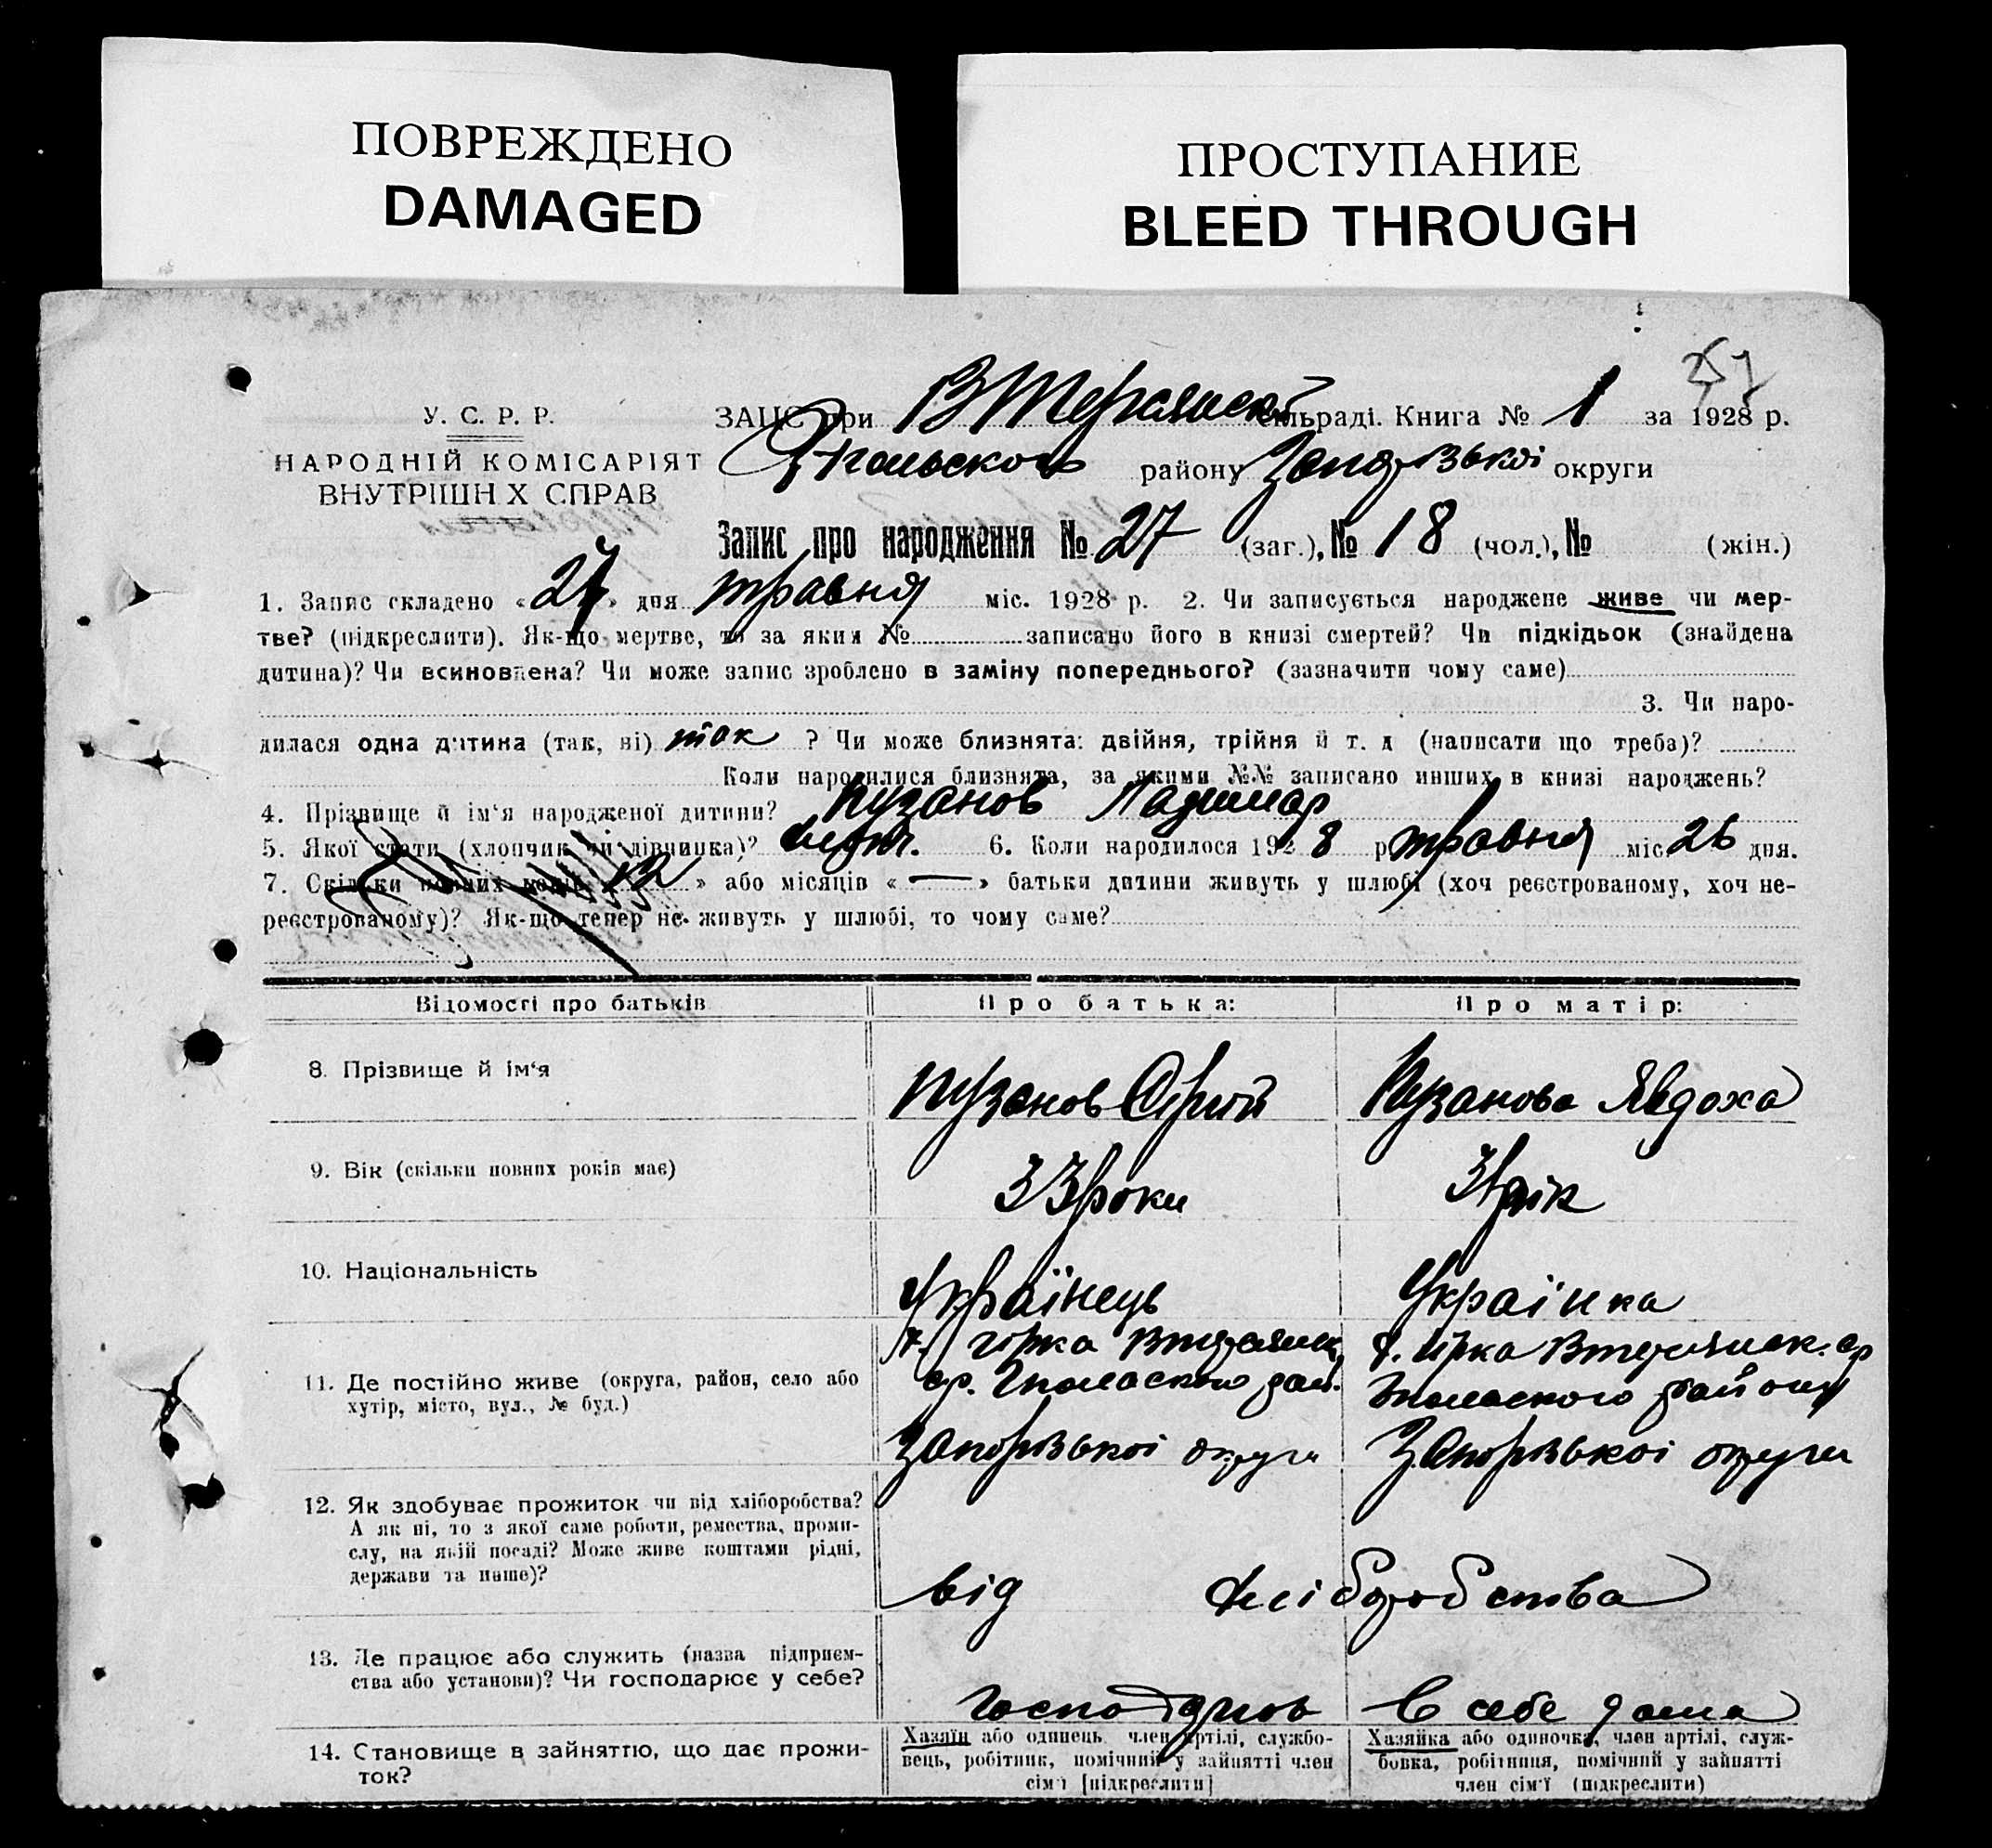 ПОВРЕЖДЕНО
DAMAGED
ПРОСТУПАНИЕ
BLEED THROUGH
257
У. С. Р. Р.
НАРОДНІЙ КОМІСАРІЯТ
ВНУТРІШН Х СПРАВ
ЗАЦС при сільраді. Книга № 1 за 1928 р.
району округи
Запис про народження № 27 (заг.), № 18 (чол.), № (жін.)
1. Запис складено «27» дня травня міс. 1928 р. 2. Чи записується народжене живе чи мер-
тве? (підкреслити). Як-що мертве, то за яким № записано його в книзі смертей? Чи підкідьок (знайдена
дитина)? Чи всиновлена? Чи може запис зроблено в заміну попереднього? (зазначити чому саме)
3. Чи наро-
дилася одна дитина (так, ні) так ? Чи може близнята: двійня, трійня й т. д (написати що треба)?
Коли народилися близнята, за якими №№ записано инших в книзі народжень?
4. Прізвище й ім‘я народженої дитини? Пузанов
5. Якої стати (хлопчик чи дівчинка)? 6. Коли народилося 1928 р травня міс 26 дня.
7. Скільки повних років « » або місяців « — » батьки дитини живуть у шлюбі (хоч реєстрованому, хоч не-
реєстрованому)? Як-що тепер не живуть у шлюбі, то чому саме?
Відомості про батьків
Про батька:
Про матір:
8. Прізвище й ім‘я
Пузанов
Пузанова Явдоха
9. Вік (скільки повних років має)
33 роки
31 рік
10. Національність
Українець
Українка
11. Де постійно живе (округа, район, село або
хутір, місто, вул., № буд.)
Запорізької округи
Запорізької округи
12. Як здобуває прожиток чи від хліборобства?
А як ні, то з якої саме роботи, ремества, проми-
слу, на якій посаді? Може живе коштами рідні,
держави та инше)?
від хліборобства
13. Де працює або служить (назва підприєм-
ства або установи)? Чи господарює у себе?
В себе дома
14. Становище в зайняттю, що дає прожи-
ток?
Хазяїн або одинець член артілі, службо-
вець, робітник, помічний у зайнятті член
сім‘ї [підкреслити]
Хазяйка або одиночка, член артілі, служ-
бовка, робітниця, помічний у зайнятті
член сім‘ї (підкреслити)